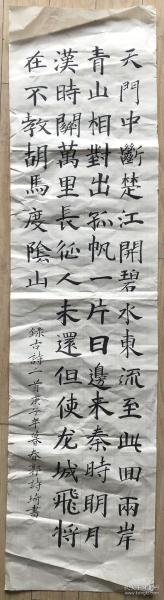 天門中斷楚江開碧水東流至此回兩岸
青山相對出孤帆一片日邊来秦時明月
漢時關萬里長征人未還但使龙城飛將
在不教胡馬度陰山
錄古詩一首庚子年春 詩琦書